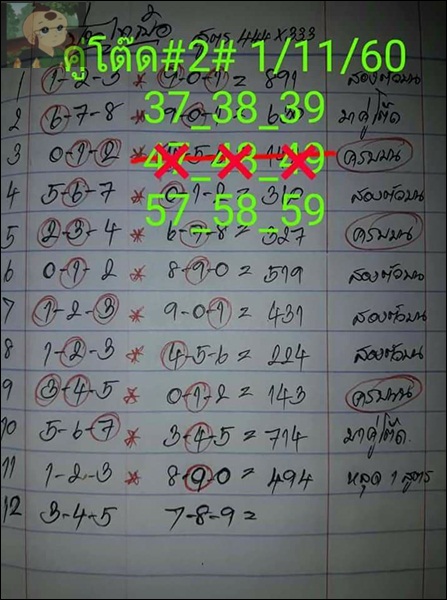 สูตร 444 x 333
คู่โต๊ด#2# 1/11/60
37_38_39
57_58_59
1 1-2-3 * 9-0-1 = 891 สองตัวบน
2 6-7-8 * 9-0-1 = มาคู่โต๊ด
3 0-1-2 ครบบน
4 5-6-7 * 0-1-2 = สองตัวบน
5 2-3-4 * 6-7-8 = 327 ครบบน
6 0-1-2 * 8-9-0 = 519 สองตัวบน
7 1-2-3 * 9-0-1 = 431 สองตัวบน
8 1-2-3 * 4-5-6 = 224 สองตัวบน
9 3-4-5 * 0-1-2 = 143 ครบบน
10 5-6-7 * 3-4-5 = 714 มาคู่โต๊ด
11 1-2-3 * 8-9-0 = 494 หลุด 1 สูตร
12 3-4-5 7-8-9 =